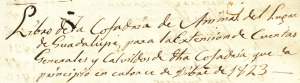 Libro de la Cofadria de Animal del Lugar
de Guadalupe, para la Extencion de Cuentas
Generales y Calvildos de dha Cofadria que da
principio en catorce de Octbre de 1923